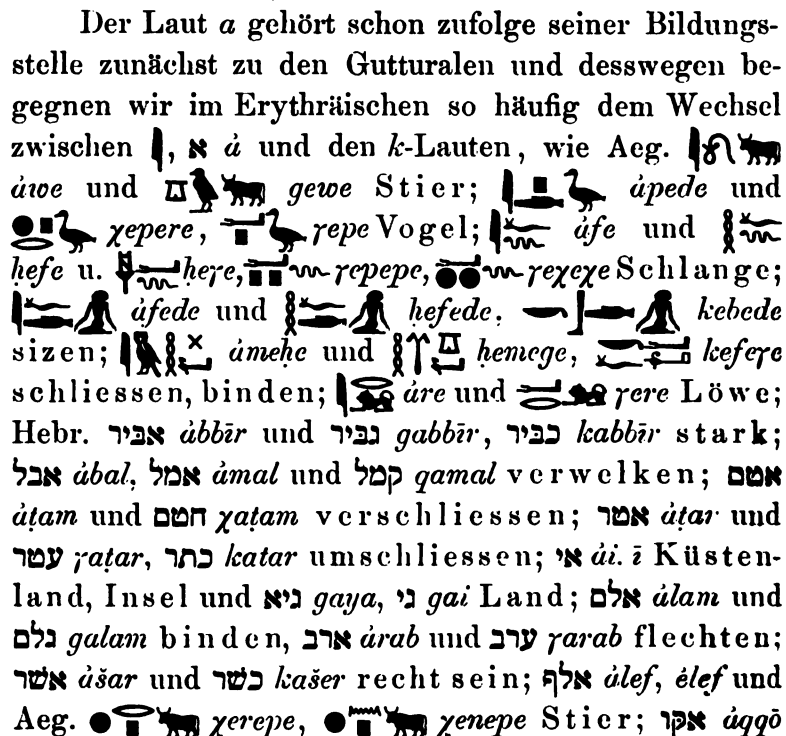 Der Laut a gehört schon zufolge seiner Bildungs-
stelle zunächst zu den Gutturalen und desswegen be-
gegnen wir im Erythräischen so häufig dem Wechsel
zwischen 𓇋, א ȧ und den k-Lauten, wie Aeg.
ȧwe und gewe Stier; ȧpede und
χepere, ɤepe Vogel; ȧfe und
ḥefe u. ḥeɤe, ɤepepe, ɤeχeχe Schlange;
ȧfede und ḥefede, kebede
sizen; ȧmeḥe und ḥemege, kefeɤe
schliessen, binden; ȧre und ɤere Löwe;
Hebr. אביר ȧbbīr und גביר gabbīr, כביר kabbīr stark;
אבל ȧbal, אמל ȧmal und קמל qamal verwelken; אטם
ȧṭam und חטם χaṭam verschliessen; אטר ȧṭar und
עטר ɤaṭar, כתר katar umschliessen; אי ȧi. ī Küsten-
land, Insel und גיא gaya, גי gai Land; אלם ȧlam und
גלם galam binden, ארב ȧrab und ערב ɤarab flechten;
אשר ȧšar und כשר kašer recht sein; אלף ȧlef, ėlef und
Aeg. χerepe, χenepe Stier; אקו ȧqqō